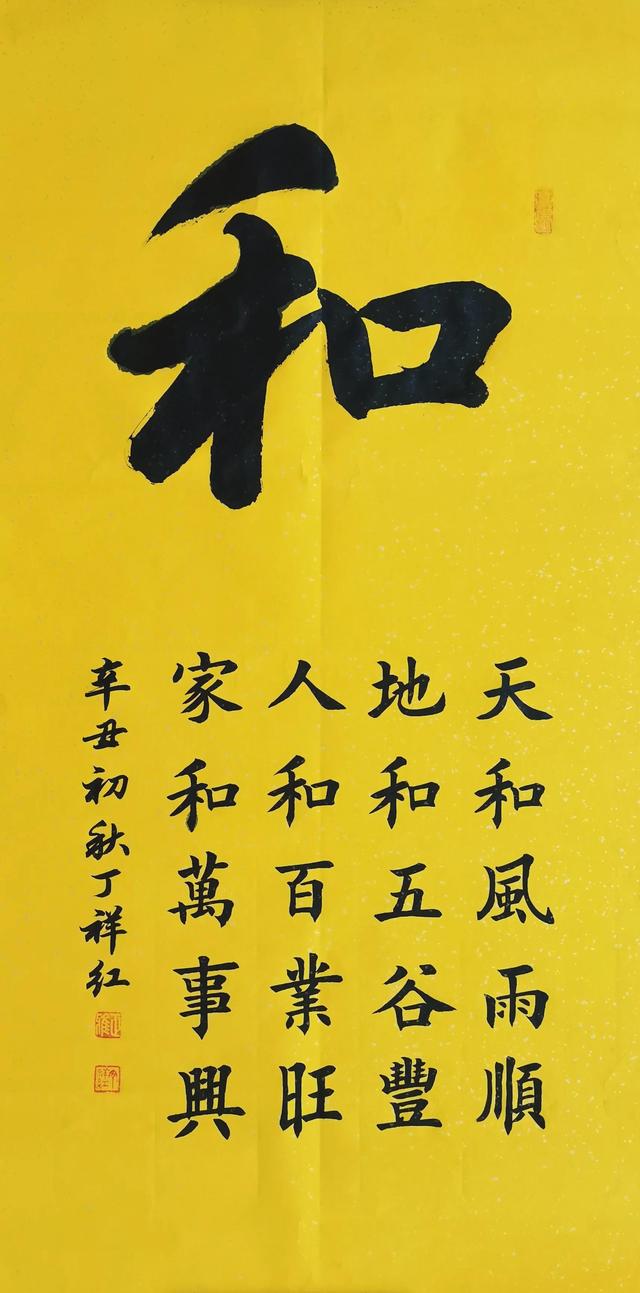 和
天和風雨順
地和五谷豐
人和百業旺
家和萬事興
辛丑初秋丁祥红